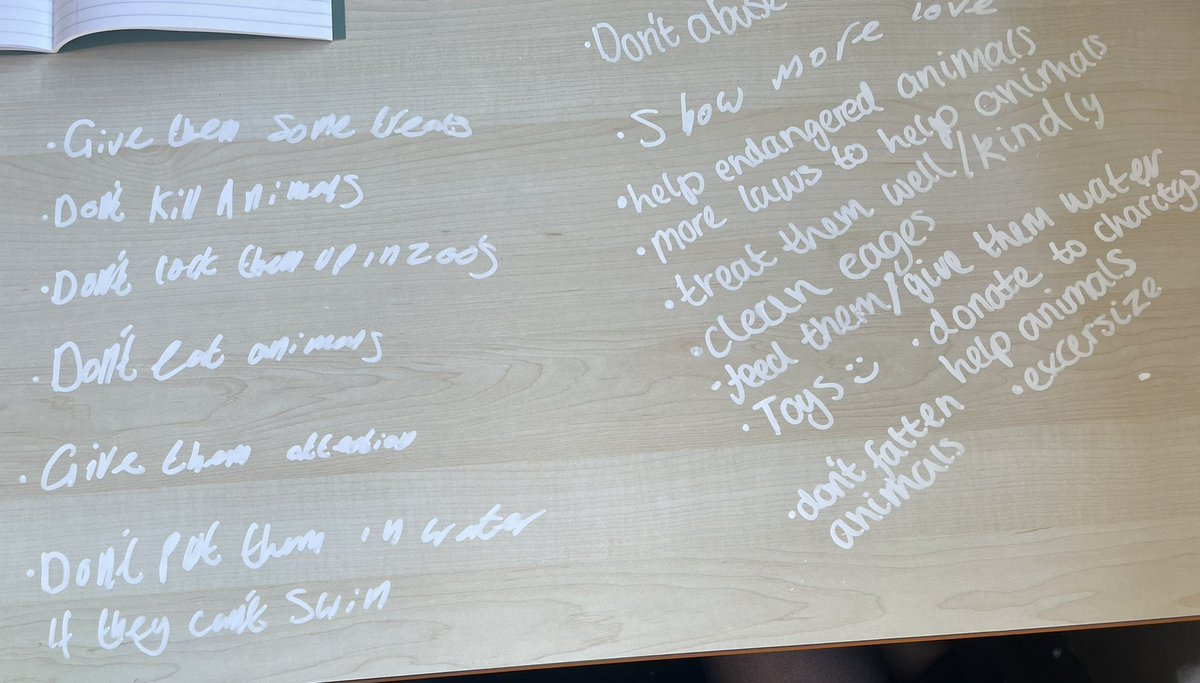 · Give them some treats
· Don't kill Animals
· Don't lock them up in zoo's
· Don't eat animals
· Give them attention
· Don't put them in water
if they can't Swim
· Don't abuse
· Show more love
· help endangered animals
· more laws to help animals
· treat them well/kindly
· clean cages
· feed them/give them water
· Toys :)
· donate to charitys
help animals
· excersize
· don't fatten
animals